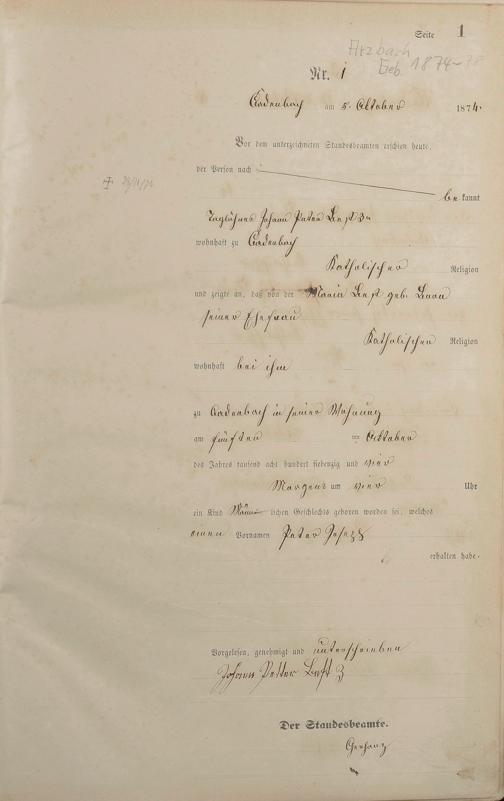 Seite 1
Arzbach
Geb. 1874-78
Nr. 1
Cadenbach am 5. Oktober 1874.
Vor dem unterzeichneten Standesbeamten erschien heute,
der Person nach
be kannt
Taglöhner Johann Peter
wohnhaft zu Cadenbach
Katholischer Religion
und zeigte an, daß von der Maria geb.
seiner Ehefrau
Katholischen Religion
wohnhaft bei ihm
zu Cadenbach in seiner Wohnung
am fünften Oktober
des Jahres tausend acht hundert siebenzig und vier
Morgens um vier Uhr
ein Kind Männ lichen Geschlechts geboren worden sei, welches
einen Vornamen Peter Joseph
erhalten habe.
Vorgelesen, genehmigt und unterschrieben
Johann Petter
Der Standesbeamte.